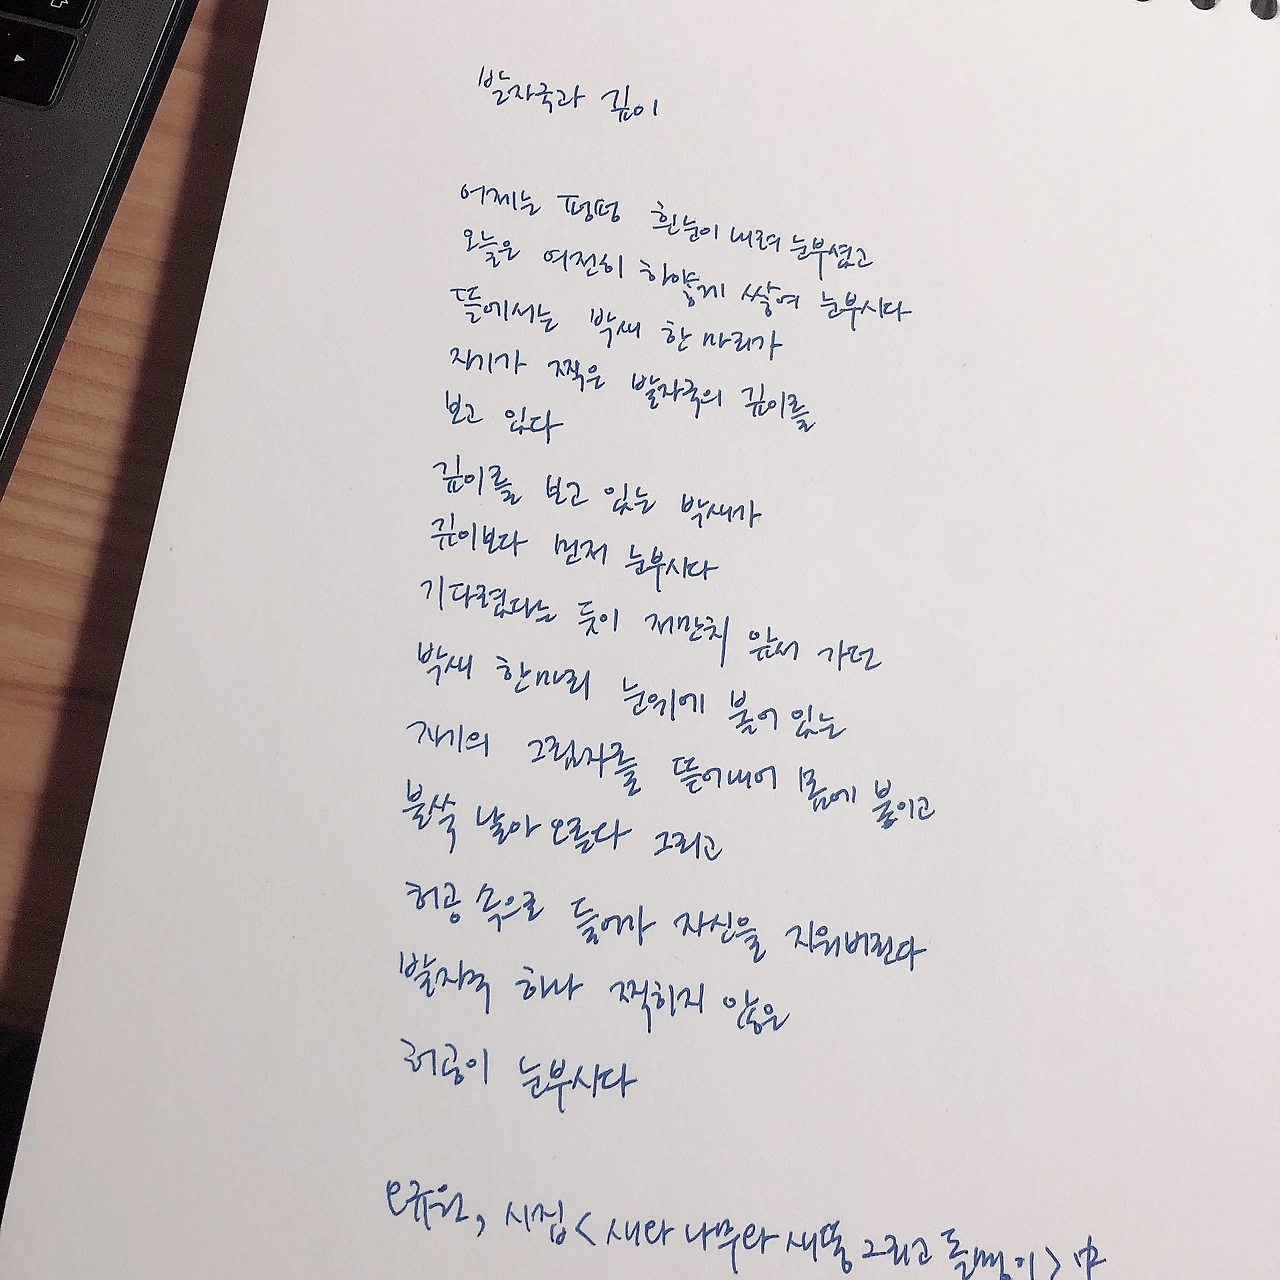 발자국과 깊이
어제는 펑펑 흰눈이 내려 눈부셨고
오늘은 여전히 하얗게 쌓여 눈부시다
뜰에서는 박새 한 마리가
자기가 찍은 발자국의 깊이를
보고 있다
깊이를 보고 있는 박새가
깊이보다 먼저 눈부시다
기다렸다는 듯이 저만치 앞서 가던
박새 한마리 눈위에 붙어 있는
자기의 그림자를 뜯어내어 몸에 붙이고
불쑥 날아 오른다 그리고
허공 속으로 들어가 자신을 지워버린다
발자국 하나 찍히지 않은
허공이 눈부시다
오규원, 시집 < 새와 나무와 새똥 그리고 돌멩이 > 中